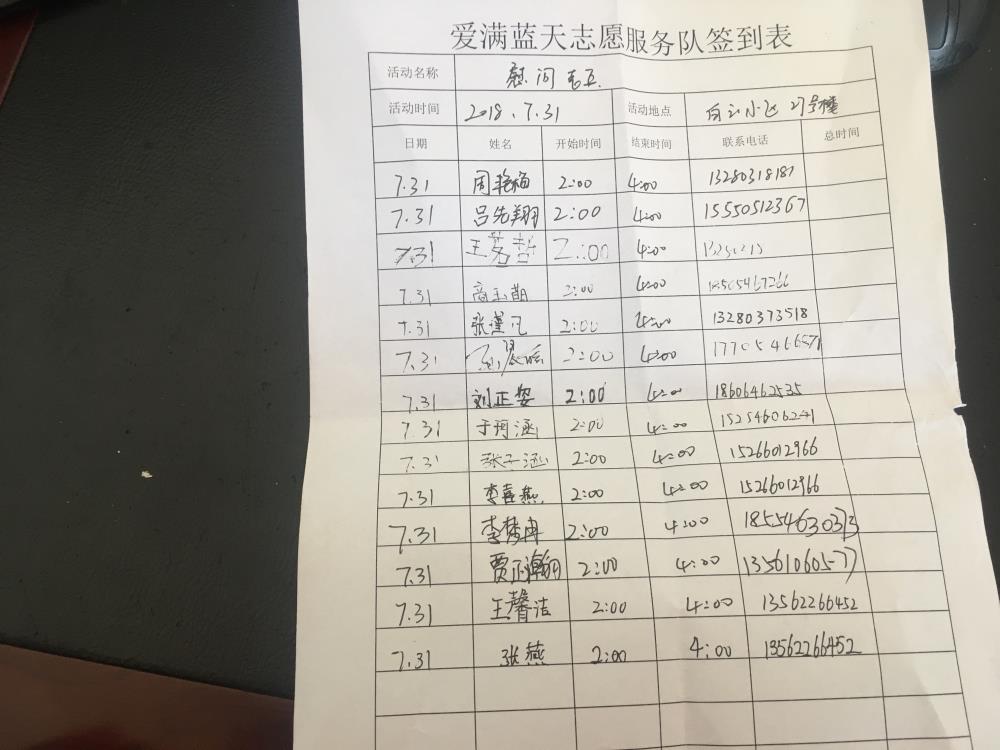 爱满蓝天志愿服务队签到表
活动名称 慰问
活动时间 2018.7.31 活动地点 白云小区 27号楼
日期 姓名 开始时间 结束时间 联系电话 总时间
7.31 周艳梅 2:00 4:00 13280318187
7.31 吕先翔 2:00 4:00 15550512367
7.31 王茗哲 2:00 4:00
7.31 商玉萌 2:00 4:00 18505467266
7.31 张瑾凡 2:00 4:00 13280373518
7.31 2:00 4:00 17705466571
7.31 刘正姿 2:00 4:00 18606462535
7.31 于珂涵 2:00 4:00 15254606241
7.31 张子涵 2:00 4:00 15266012966
7.31 李喜燕 2:00 4:00 15266012966
7.31 李梦冉 2:00 4:00 18554630373
7.31 贾正瀚翔 2:00 4:00 13561060577
7.31 王馨洁 2:00 4:00 13562266452
7.31 张燕 2:00 4:00 13562266452